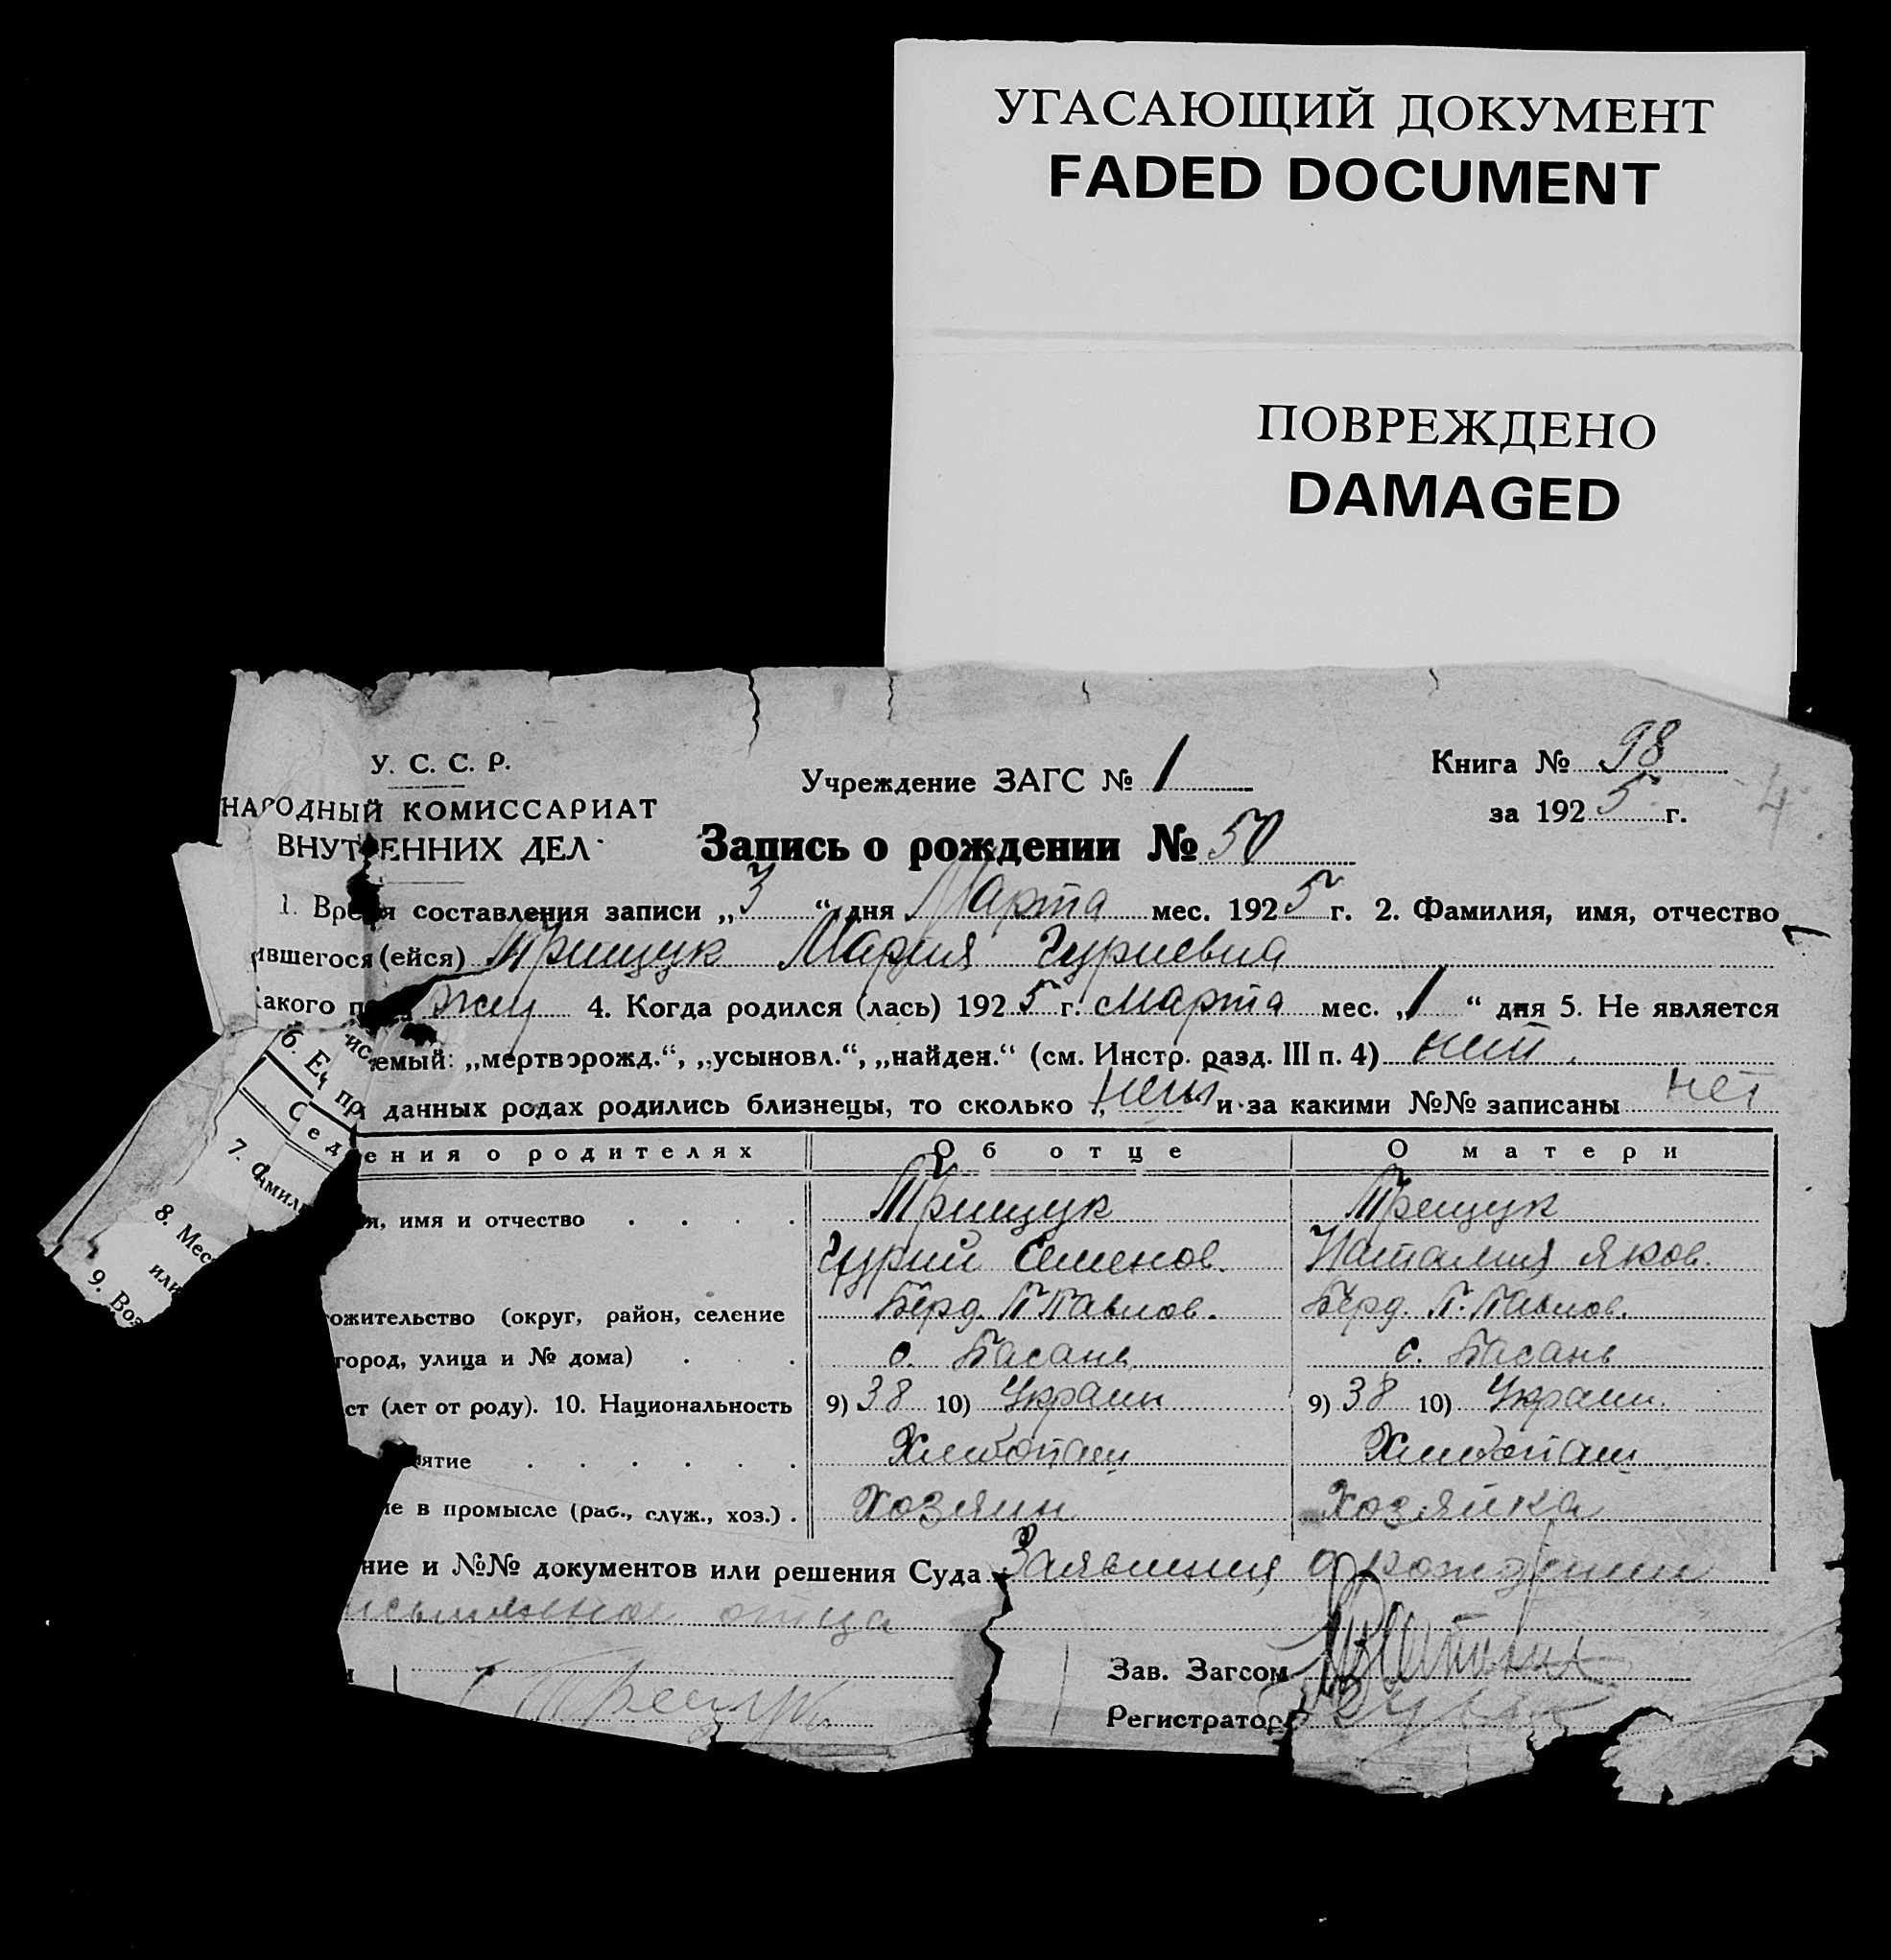 УГАСАЮЩИЙ ДОКУМЕНТ
FADED DOCUMENT
ПОВРЕЖДЕНО
DAMAGED
У. С. С. Р.
НАРОДНЫЙ КОМИССАРИАТ
ВНУТРЕННИХ ДЕЛ
Учреждение ЗАГС № 1
Книга № 98
за 1925 г.
4
Запись о рождении № 50
1. Время составления записи „3“ дня Марта мес. 1925 г. 2. Фамилия, имя, отчество
ившегося (ейся) Трищук Мария Гуриевна
акого п жен 4. Когда родился (лась) 1925 г. марта мес. „1“ дня 5. Не является
исемый: „мертворожд.“, „усыновл.“, „найден.“ (см. Инстр. разд. III п. 4) нет.
6. Е пр данных родах родились близнецы, то сколько „ нет и за какими №№ записаны нет
Сед ения о родителях Об отце О матери
7. Фамил я, имя и отчество . . . . Трищук Трещук
Гурий Семенов. Наталия Яков.
8. Мес ожительство (округ, район, селение Берд. П Павлов. Берд. П. Павлов.
или город, улица и № дома) . . . с. Басань с. Басань
9. Воз ст (лет от роду). 10. Национальность 9) 38 10) Украин 9) 38 10) Украин.
нятие . . . . . . Хлебопаш Хлебопаш
ие в промысле (раб., служ., хоз.) . Хозяин Хозяйка
ние и №№ документов или решения Суда Заявления о рождении
отца
Зав. Загсом
Регистратор